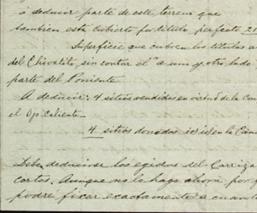 a deducir parte de este terreno que
tambien está cubierto por titulo perfecto 25
Superficie que cubren los titulos a
del Chivalito, sin contar el a un y otro lado
parte del Poniente
A deducir: 4 sitios vendidos en virtud de la Com
el Ojo Caliente
4 sitios donados
debe deducirse los egidos del Carriza
cortos. Aunque no le hago ahora por
podré fijar exactamente a cuanto